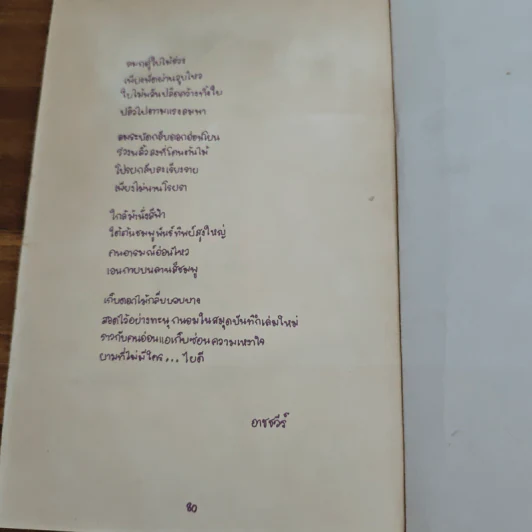 ลมกรูใบไม้ร่วง
เพียงพัดผ่านวูบไหว
ใบไม้พลันปลิดขั้วทิ้งใบ
ปลิวไปตามแรงลมพา
ลมระบัดกลีบดอกอ่อนโยน
ร่วงพลิ้วลงที่โคนต้นไม้
โปรยกลีบละเรียงราย
เพียงไม่นานโรยรา
ใกล้ม้านั่งสีฟ้า
ใต้ต้นชมพูพันธุ์ทิพย์สูงใหญ่
คนอารมณ์อ่อนไหว
เอนกายบนลานสีชมพู
เก็บดอกไม้กลีบบอบบาง
สอดไว้อย่างทะนุถนอมในสมุดบันทึกเล่มใหม่
ราวกับคนอ่อนแอเก็บซ่อนความเหงาใจ
ยามที่ไม่มีใคร... ไยดี
อาชชวีร์
80